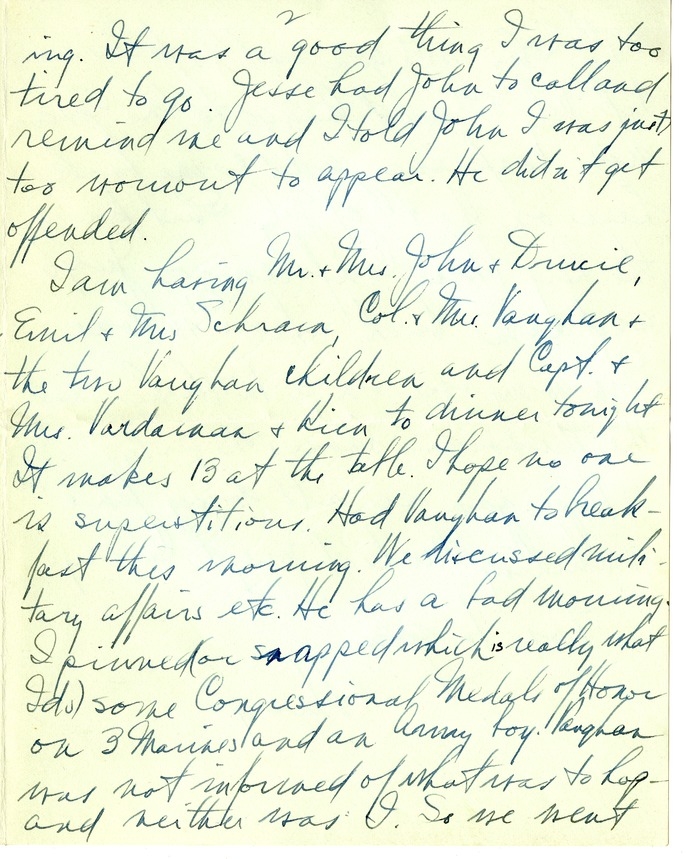 2
ing. It was a good thing I was too
tired to go. Jesse had John to call and
remind me and I told John I was just
too wornout to appear. He didn't get
offended.
I am having Mr. + Mrs. John + Drucie,
Emil + Mrs Schram, Col. + Mrs. Vaughan +
the two Vaughan children and Capt. +
Mrs. Vardaman + kien to dinner tonight
It makes 13 at the table. I hope no one
is superstitious. Had Vaughan to break-
fast this morning. We discussed mili-
tary affairs etc. He has a bad morning.
I pinned (or snapped which is really what
I do) some Congressional Medals of Honor
on 3 Marines and an Army boy. Vaughan
was not informed of what was to hap-
and neither was I. So we went